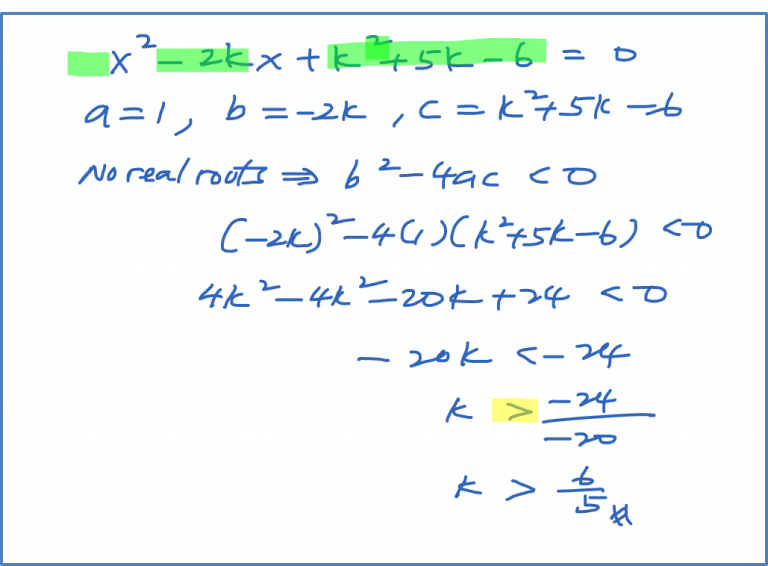 x² - 2kx + k² + 5k - 6 = 0
a = 1, b = -2k, c = k² + 5k - 6
No real roots ⇒ b² - 4ac < 0
(-2k)² - 4(1)(k² + 5k - 6) < 0
4k² - 4k² - 20k + 24 < 0
- 20k < - 24
k > -24/-20
k > 6/5